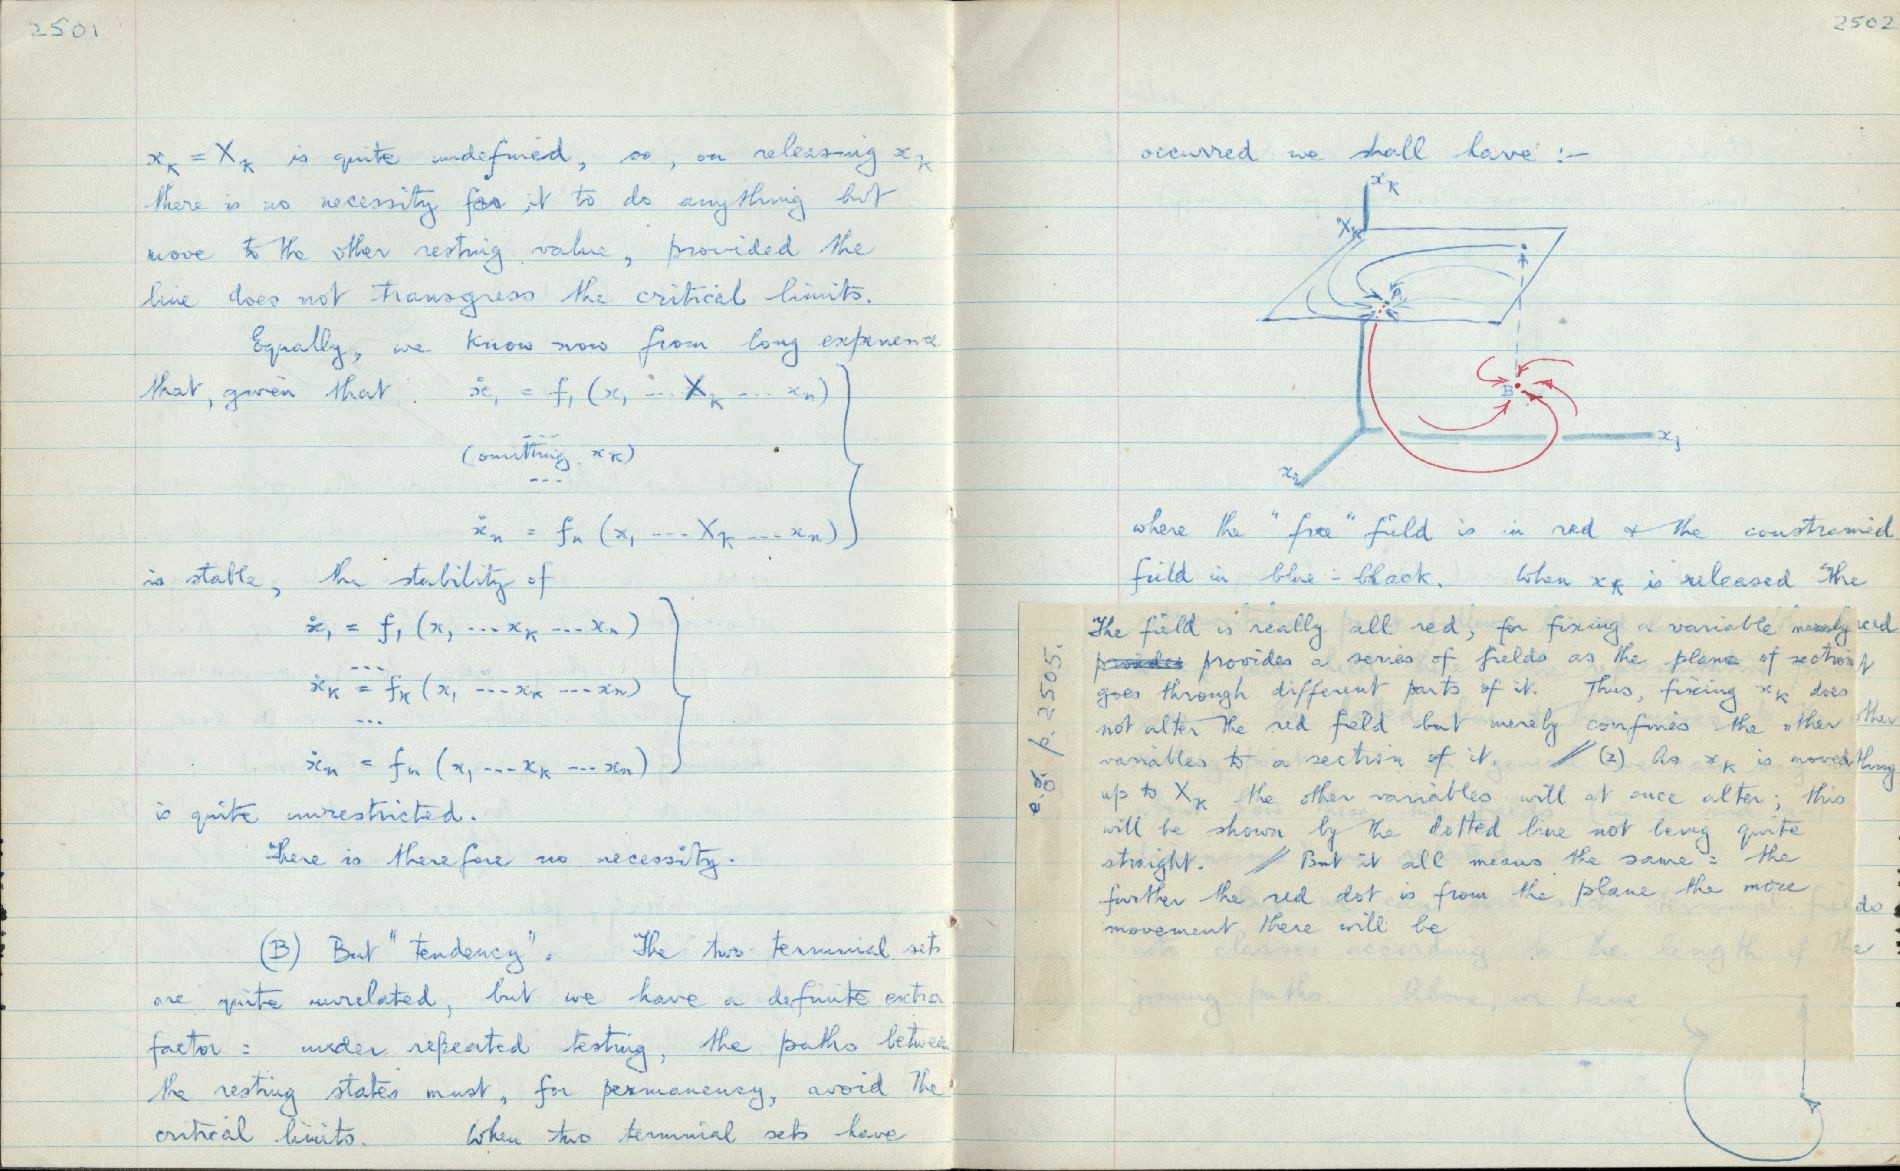 2501
x_K = X_K is quite undefined, so, on releasing x_K
there is no necessity for it to do anything but
move to the other resting value, provided the
line does not transgress the critical limits.
Equally, we know now from long experience
that, given that ẋ₁ = f₁ (x₁ --- X_K --- xₙ)
---
(omitting x_K)
---
ẋₙ = fₙ (x₁ --- X_K --- xₙ)
is stable, the stability of
ẋ₁ = f₁ (x₁ --- x_K --- xₙ)
---
ẋ_K = f_K (x₁ --- x_K --- xₙ)
---
ẋₙ = fₙ (x₁ --- x_K --- xₙ)
is quite unrestricted.
There is therefore no necessity.
(B) But "tendency". The two terminal sets
are quite unrelated, but we have a definite extra
factor: under repeated testing, the paths between
the resting states must, for permanency, avoid the
critical limits. When two terminal sets have
2502
occurred we shall have :-
x_K
X_K
A
B
x₁
x₂
where the "free" field is in red & the constrained
field in blue-black. When x_K is released the
e.g. p. 2505.
The field is really all red, for fixing a variable merely
provides provides a series of fields as the plane of section
goes through different parts of it. Thus, fixing x_K does
not alter the red field but merely confines the other
variables to a section of it. // (2) As x_K is moved
up to X_K the other variables will at once alter; this
will be shown by the dotted line not being quite
straight. // But it all means the same: the
further the red dot is from the plane the more
movement there will be
classes according to the length of the
joining paths. Above, we have